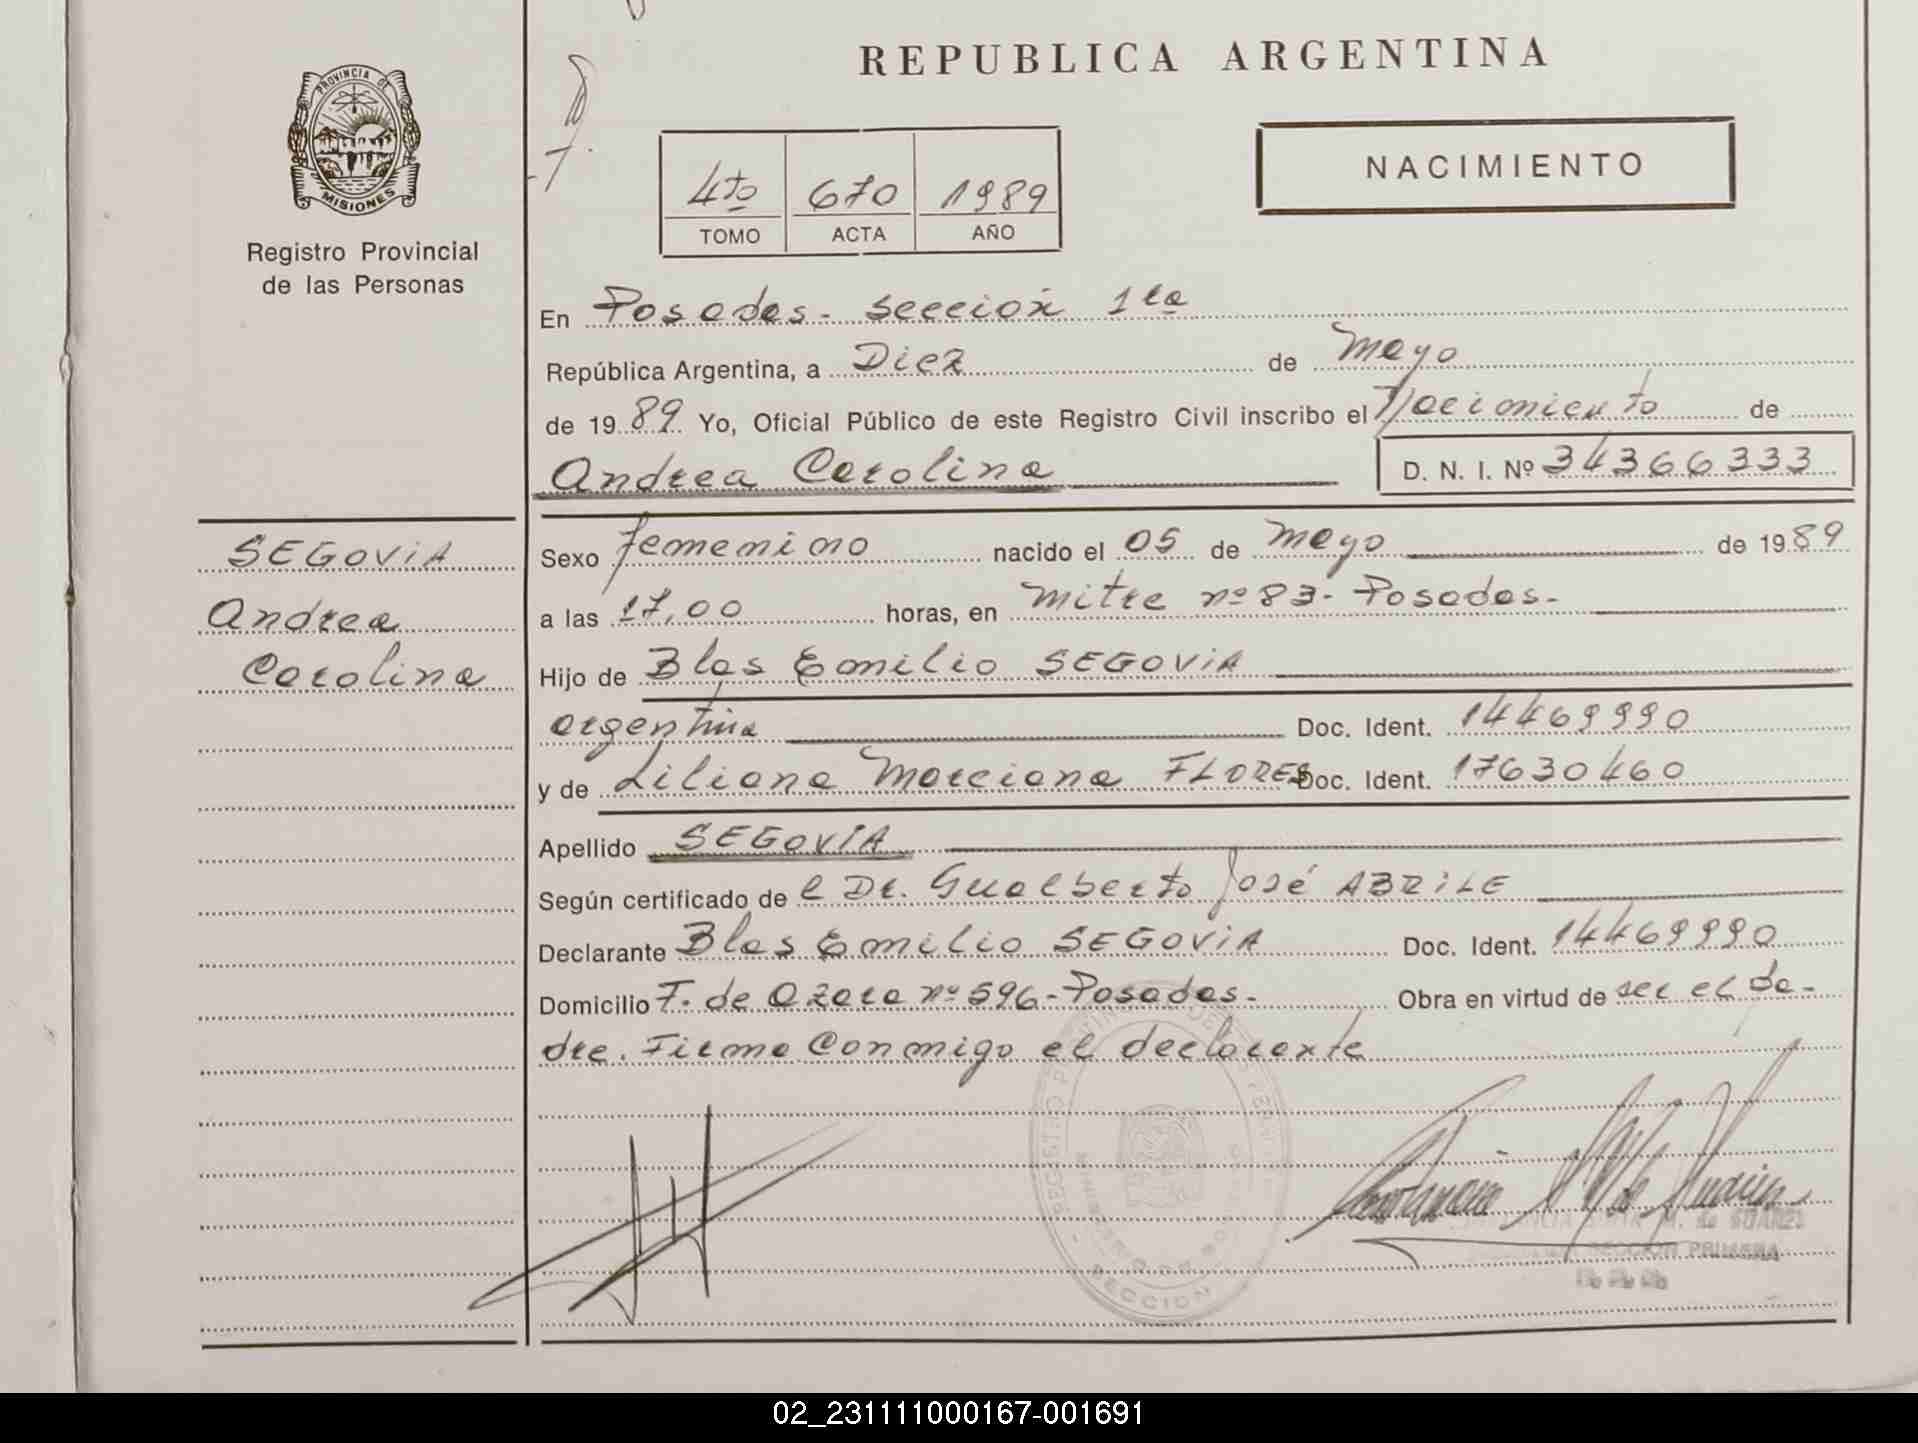 REPUBLICA ARGENTINA
PROVINCIA DE
MISIONES
Registro Provincial
de las Personas
4to 670 1989
TOMO ACTA AÑO
NACIMIENTO
En Posadas - sección 1ra
República Argentina, a Diez de Mayo
de 1989 Yo, Oficial Público de este Registro Civil inscribo el Nacimiento de
Andrea Carolina D. N. I. Nº 34366333
SEGOVIA
Andrea
Carolina
Sexo femenino nacido el 05 de Mayo de 1989
a las 17,00 horas, en Mitre nº 83 - Posadas -
Hijo de Blas Emilio SEGOVIA
argentina Doc. Ident. 14469990
y de Liliana Marciana FLORES Doc. Ident. 17630460
Apellido SEGOVIA
Según certificado de l Dr. Gualberto José ABRILE
Declarante Blas Emilio SEGOVIA Doc. Ident. 14469990
Domicilio F. de Azara nº 596 - Posadas - Obra en virtud de ser el Pa-
dre. Firma Conmigo el declarante
M. de SUAREZ
SECCION PRIMERA
SECCION
02_231111000167-001691